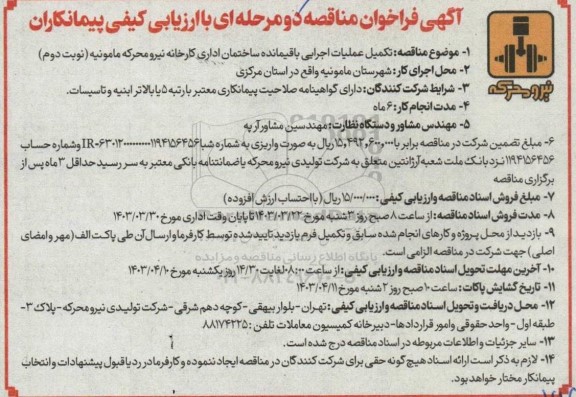 آگهی فراخوان مناقصه دو مرحله ای با ارزیابی کیفی پیمانکاران
نیرو محرکه
۱- موضوع مناقصه: تکمیل عملیات اجرایی باقیمانده ساختمان اداری کارخانه نیرو محرکه مامونیه (نوبت دوم)
۲- محل اجرای کار: شهرستان مامونیه واقع در استان مرکزی
۳- شرایط شرکت کنندگان: دارای گواهینامه صلاحیت پیمانکاری معتبر با رتبه ۵ یا بالاتر ابنیه و تاسیسات.
۴- مدت انجام کار: ۶ ماه
۵- مهندس مشاور و دستگاه نظارت: مهندسین مشاور آریه
۶- مبلغ تضمین شرکت در مناقصه برابر با ۱۵,۴۹۲,۶۰۰,۰۰۰ ریال به صورت واریزی به شماره شبا و شماره حساب
۱۱۹۴۱۵۶۴۵۶ نزد بانک ملت شعبه آرژانتین متعلق به شرکت تولیدی نیرو محرکه یا ضمانتنامه بانکی معتبر به سر رسید حداقل ۳ ماه پس از
برگزاری مناقصه
۷- مبلغ فروش اسناد مناقصه و ارزیابی کیفی: ۱۵/۰۰۰/۰۰۰ ریال (با احتساب ارزش افزوده)
۸- مدت فروش اسناد مناقصه: از ساعت ۸ صبح روز ۳ شنبه مورخ ۱۴۰۳/۰۳/۲۲ تا پایان وقت اداری مورخ ۱۴۰۳/۰۳/۳۰
۹- بازدید از محل پروژه و کارهای انجام شده سابق و تکمیل فرم بازدید تایید شده توسط کارفرما و ارسال آن طی پاکت الف (مهر و امضای
اصلی) جهت شرکت در مناقصه الزامی است.
۱۰- آخرین مهلت تحویل اسناد مناقصه و ارزیابی کیفی: از ساعت ۰۸:۰۰ لغایت ۱۴/۳۰ روز یکشنبه مورخ ۱۴۰۳/۰۴/۱۰
۱۱- تاریخ گشایش پاکات: ساعت ۱۰ صبح روز ۲ شنبه مورخ ۱۴۰۳/۰۴/۱۱
۱۲- محل دریافت و تحویل اسناد مناقصه و ارزیابی کیفی: تهران - بلوار بیهقی - کوچه دهم شرقی - شرکت تولیدی نیرو محرکه - پلاک ۳ -
طبقه اول - واحد حقوقی و امور قراردادها - دبیرخانه کمیسیون معاملات تلفن: ۸۸۱۷۴۲۲۵
۱۳- سایر جزئیات و اطلاعات مربوطه در اسناد مناقصه درج شده است.
۱۴- لازم به ذکر است ارائه اسناد هیچ گونه حقی برای شرکت کنندگان در مناقصه ایجاد ننموده و کارفرما در رد یا قبول پیشنهادات و انتخاب
پیمانکار مختار خواهد بود.